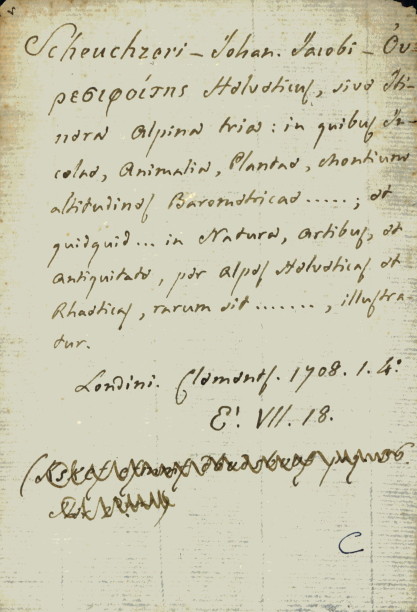 Scheuchzeri – Johan. Jacobi – Ὀυ-
ρεσιφοίτης Helveticus, sive Iti-
nera Alpina tria: in quibus In-
colae, Animalia, Plantae, Montium
altitudines Barometricae .....; et
quidquid ... in Natura, Artibus, et
Antiquitate, per Alpes Helveticas et
Rhaeticas, rarum sit ......., illustra
tur.
Londini. Clements. 1708. 1. 4.o
E! VII. 18.
C